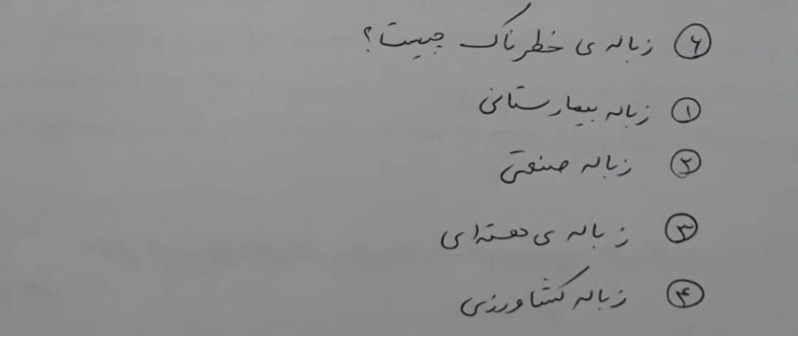 ۶ زباله ی خطرناک چیست؟
۱ زباله بیمارستانی
۲ زباله صنعتی
۳ زباله ی هسته ای
۴ زباله کشاورزی